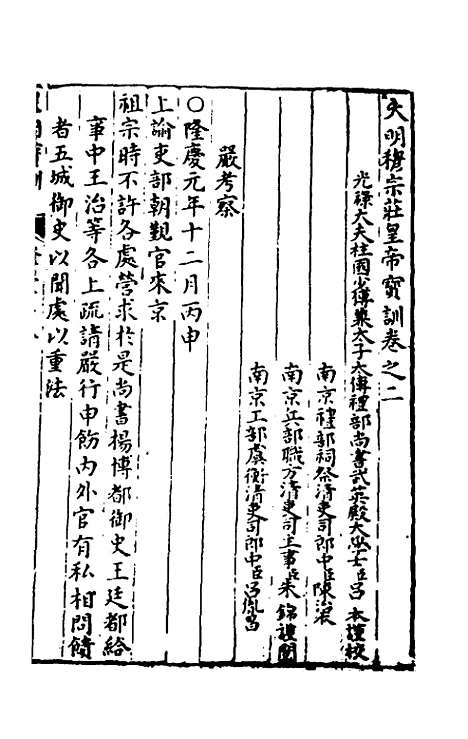 大明穆宗莊皇帝寶訓卷之二
光祿大夫柱國少傅兼太子太傅禮部尚書武英殿大學士臣呂 本謹校
南京禮部祠祭清吏司郎中臣陳治
南京兵部職方清吏司主事臣朱 錦謹閱
南京工部虞衡清吏司郎中臣呂胤昌
嚴考察
○隆慶元年十二月丙申
上諭吏部朝覲官來京
祖宗時不許各處營求於是尚書楊博都御史王廷都給
事中王治等各上疏請嚴行申飭內外官有私相問饋
者五城御史以聞處以重法